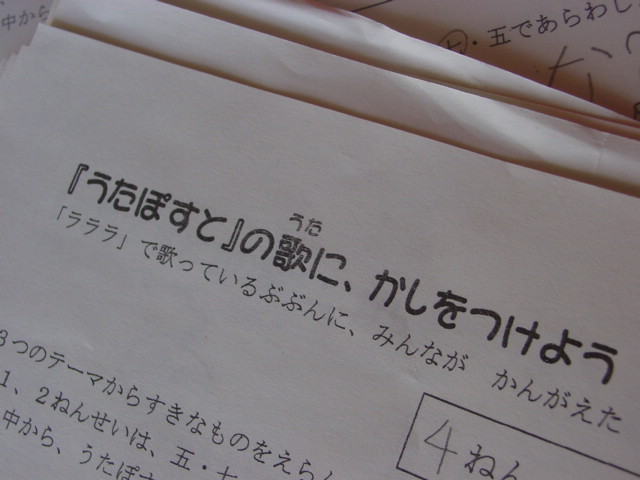 中から
七・五であらわし
うた
『うたぽすと』の歌に、かしをつけよう
「ラララ」で歌っているぶぶんに、みんなが かんがえた
3つのテーマからすきなものをえらん
1、2ねんせいは、五・七
中から、うたぽす
4ねん